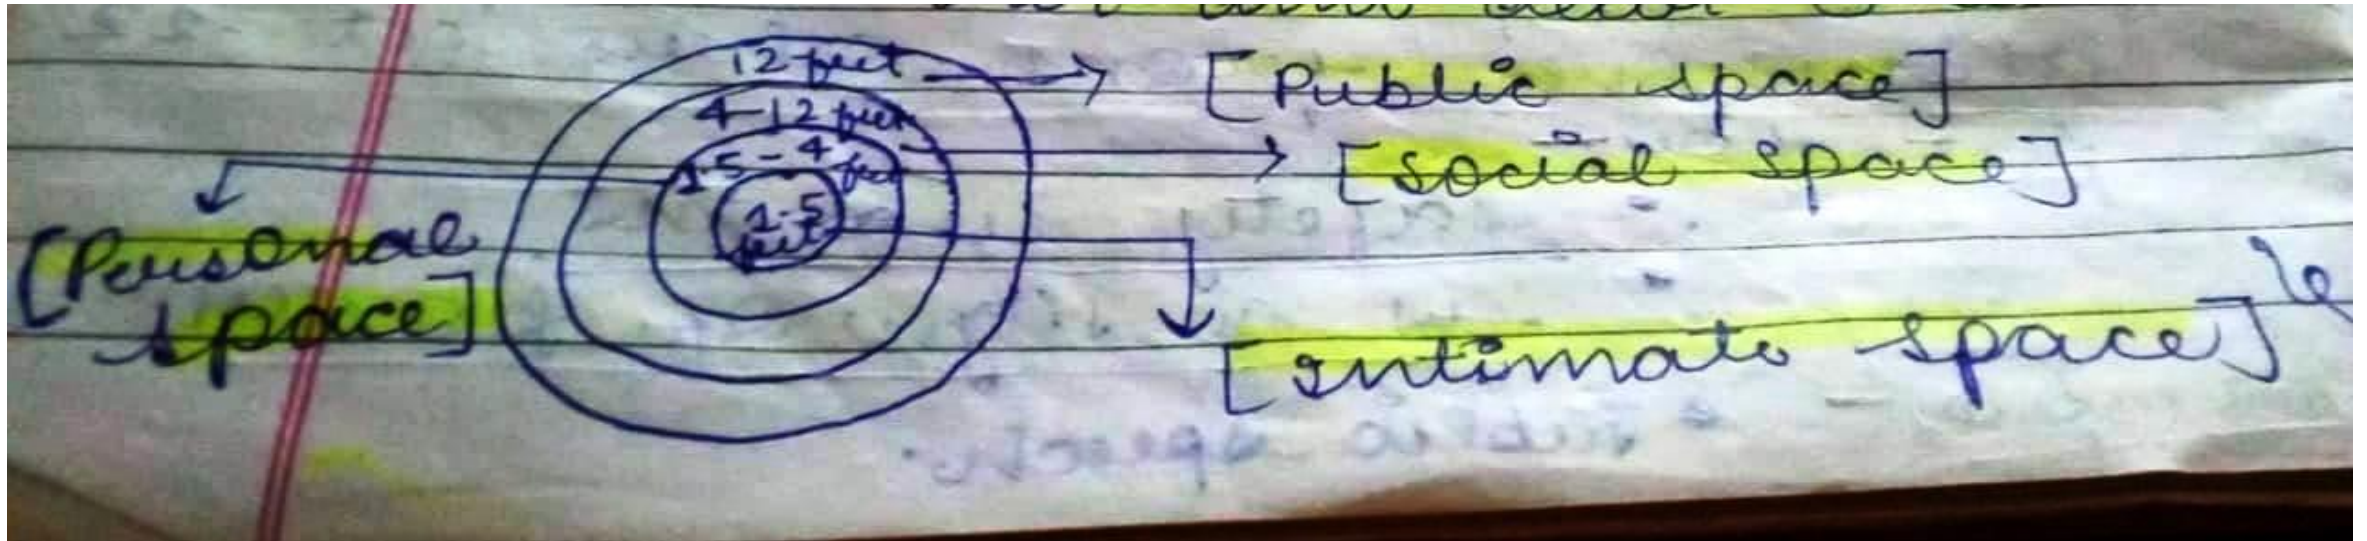 12 feet
[Public space]
4-12 feet
[Social space]
1.5-4 feet
1.5
feet
[Personal
space]
[Intimate space]